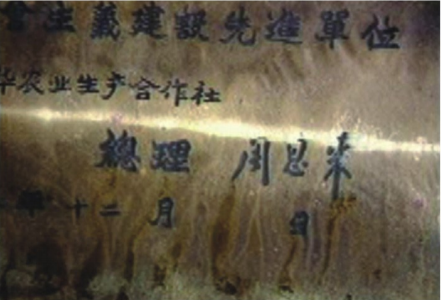 會主義建設先進單位
华农业生产合作社
總理 周恩来
年十二月 日